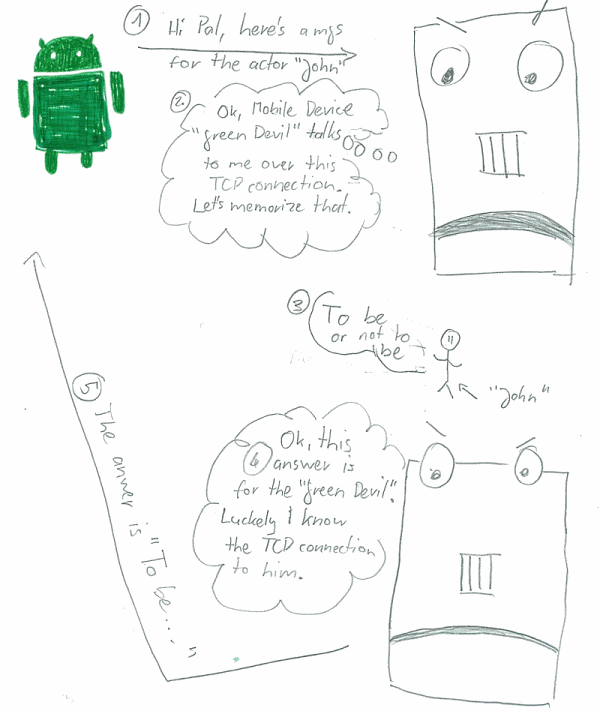 1 Hi Pal, here's a mgs
for the actor "John"
2. Ok, Mobile Device
"green Devil" talks
to me over this
TCP connection.
Let's memorize that.
3 To be
or not to
be
"John"
4 Ok, this
answer is
for the "green Devil".
Luckely I know
the TCP connection
to him.
5 The anwer is "To be...."